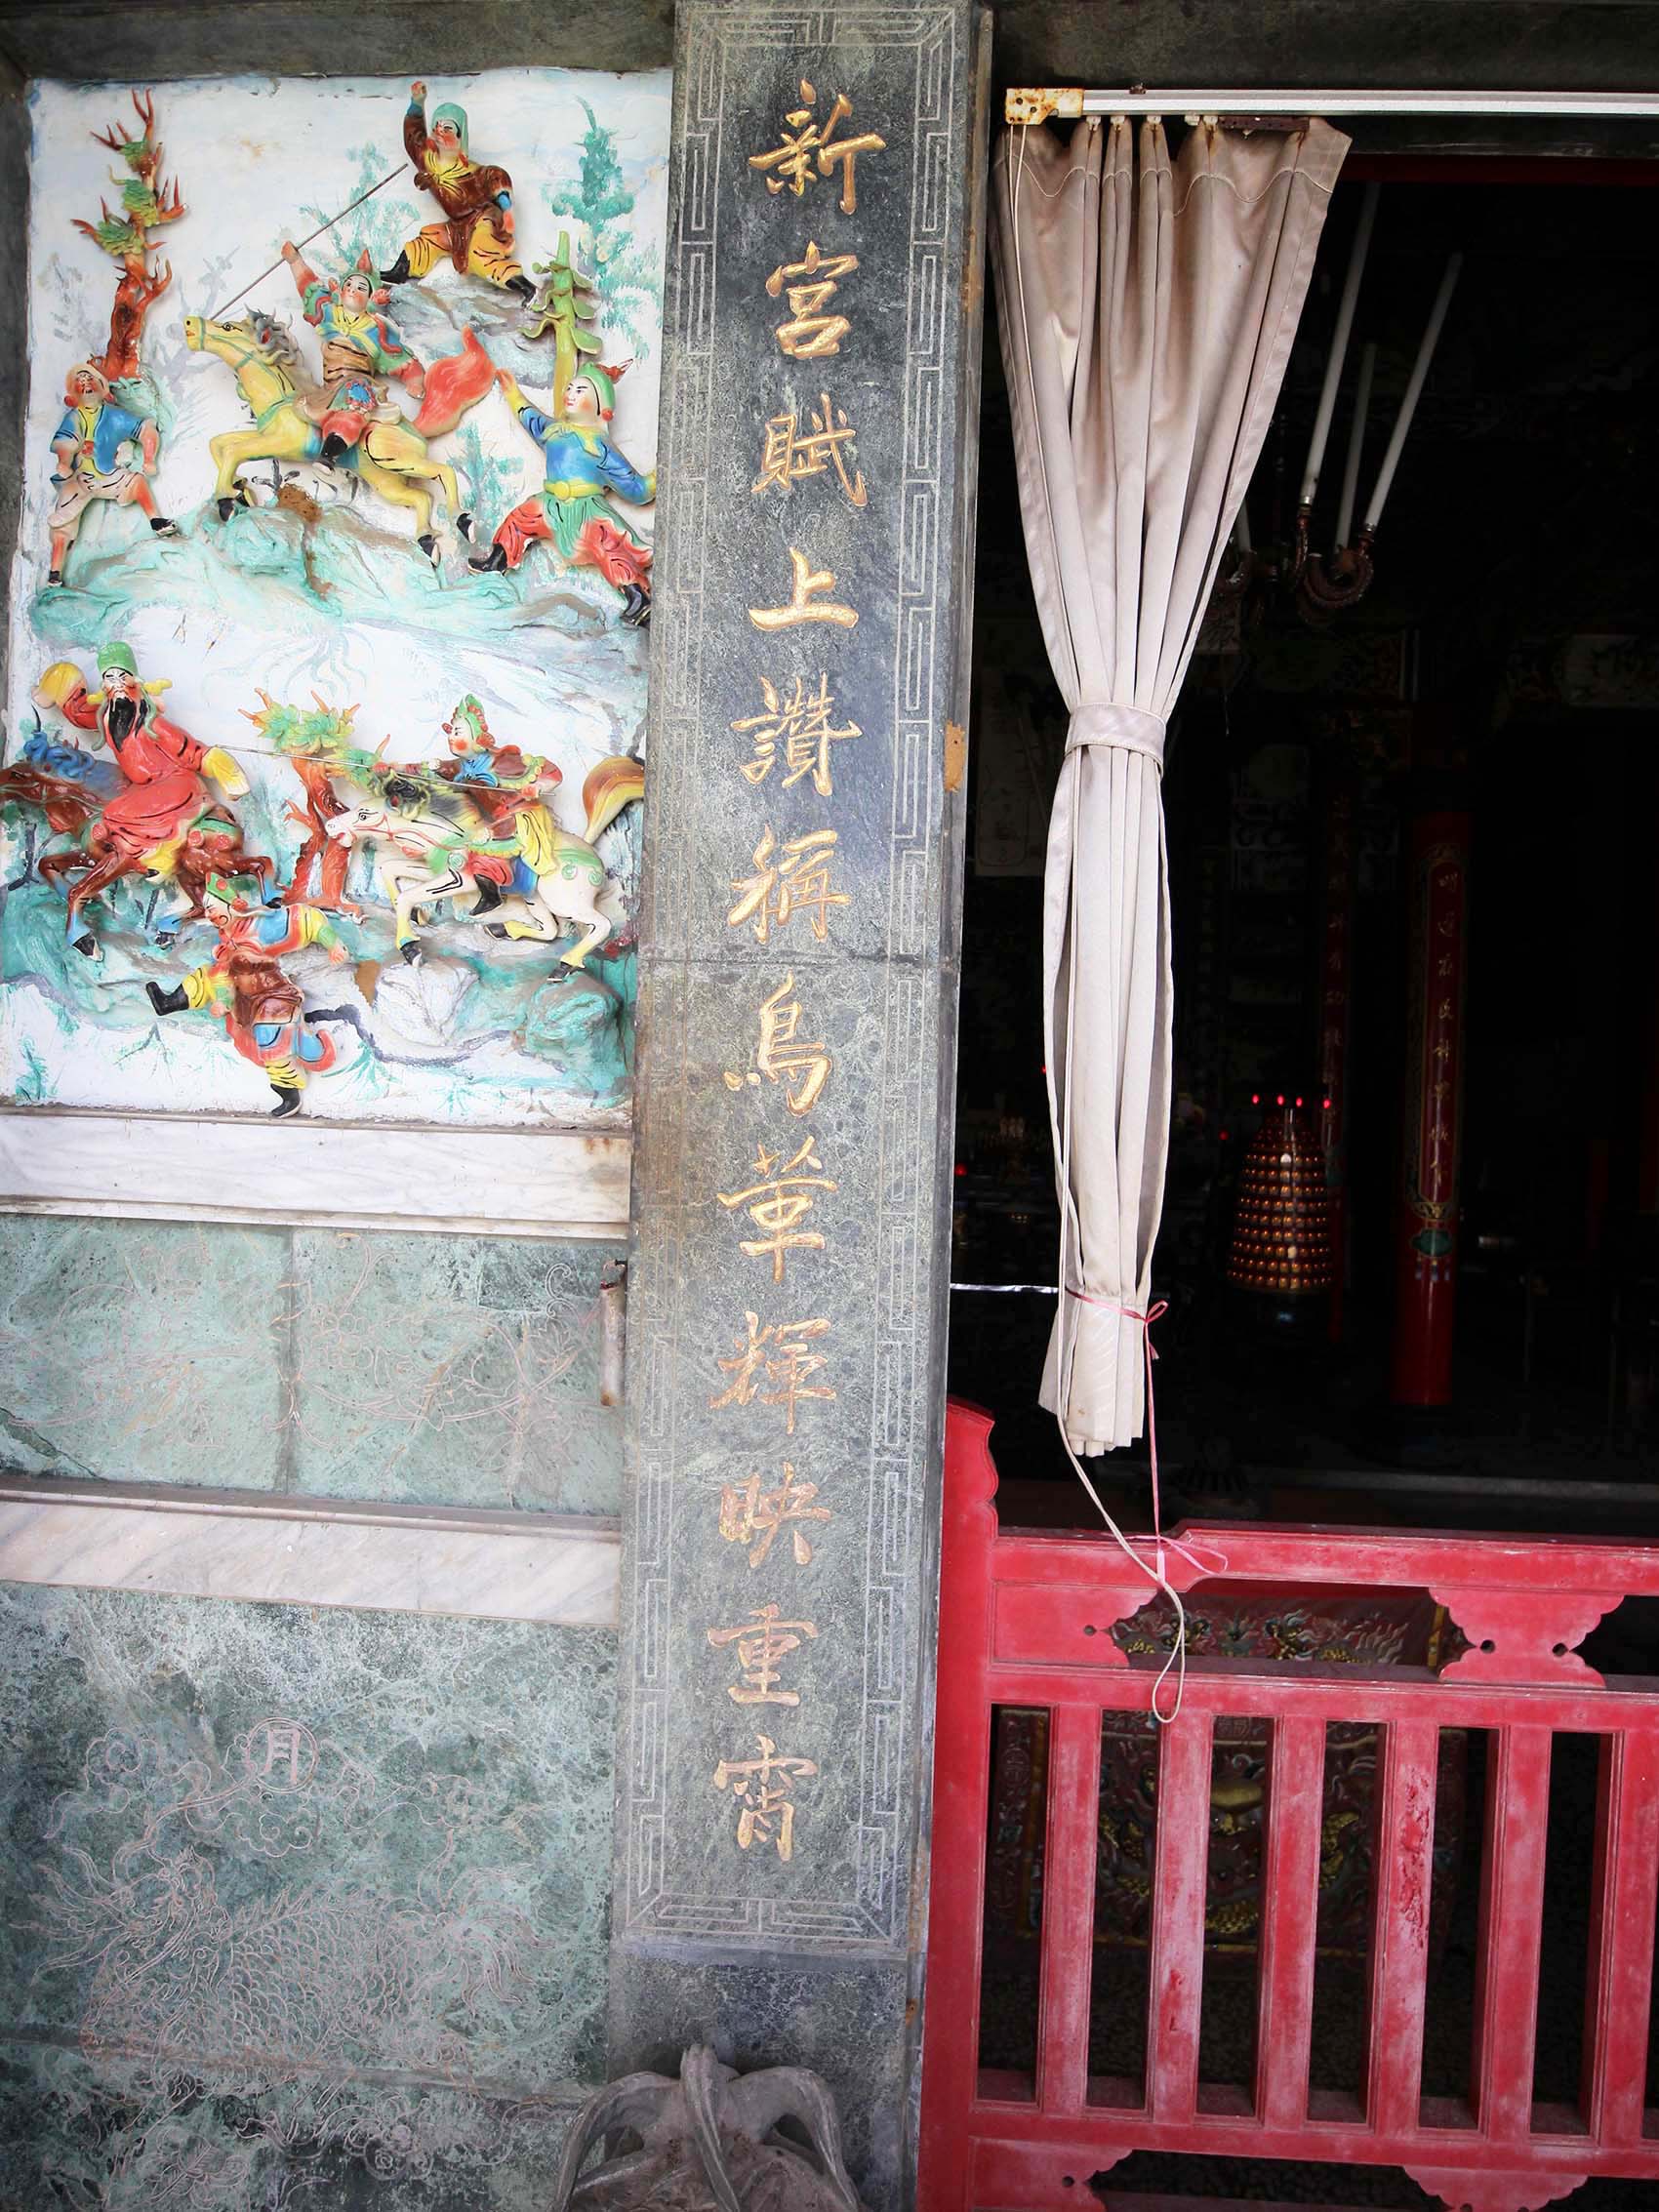 新宮賦上讚稱鳥革輝映重霄
月